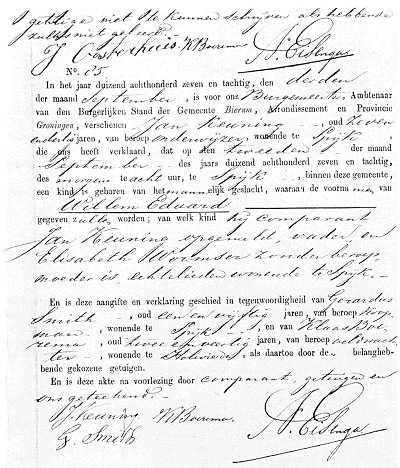 getuige niet te kunnen schrijven als hebbende
zulks niet geleerd.
J. Oosterhuis. K Bourema N. Eisenga
No. 65
In het jaar duizend achthonderd zeven en tachtig, den derden
der maand September, is voor ons Burgemeester, Ambtenaar
van den Burgerlijken Stand der Gemeente Bierum, Arrondissement en Provincie
Groningen, verschenen Jan Keuning, oud zeven
endertig jaren, van beroep onderwijzer, wonende te Spijk,
die ons heeft verklaard, dat op den tweeden der maand
September des jaars duizend achthonderd zeven en tachtig,
des morgens te acht uur, te Spijk, binnen deze gemeente,
een kind is geboren van het mannelijk geslacht, waaraan de voornamen van
Willem Eduard
gegeven zullen worden; van welk kind hij comparant
Jan Keuning opgemeld, vader, en
Elisabeth Wormser zonder beroep
moeder is, echtelieden wonende te Spijk.
En is deze aangifte en verklaring geschied in tegenwoordigheid van Gerardus
Smith, oud een en vijftig jaren, van beroep Koop
man, wonende te Spijk, en van Klaas Bou
rema, oud twee en veertig jaren, van beroep veldwach
ter, wonende te Holwierde, als daartoe door de belangheb-
bende gekozene getuigen.
En is deze akte na voorlezing door comparant, getuigen en
ons geteekend.
J. Keuning K Bourema. N. Eisenga
G. Smith